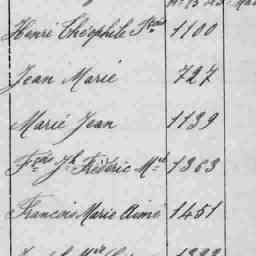 Henri Théophile Fçois 1100
Jean Marie 727
Marie Jean 1139
Fçois Jh Frédéric Mie 1363
Francois Marie Aimé 1451